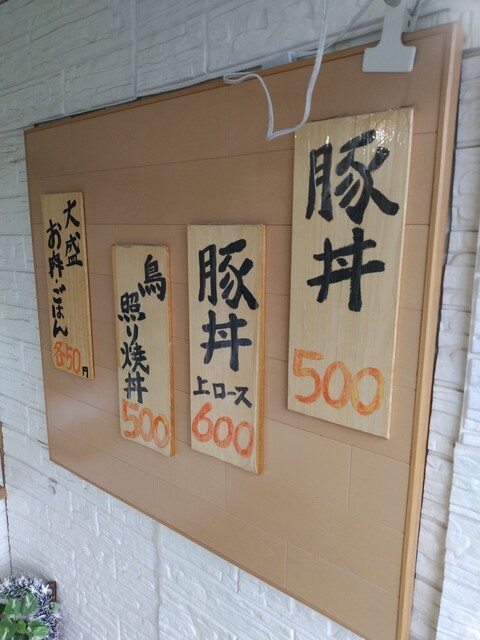 豚丼
500
豚丼
上ロース
600
鳥
照り焼丼
500
大盛
お料・ごはん
各50円